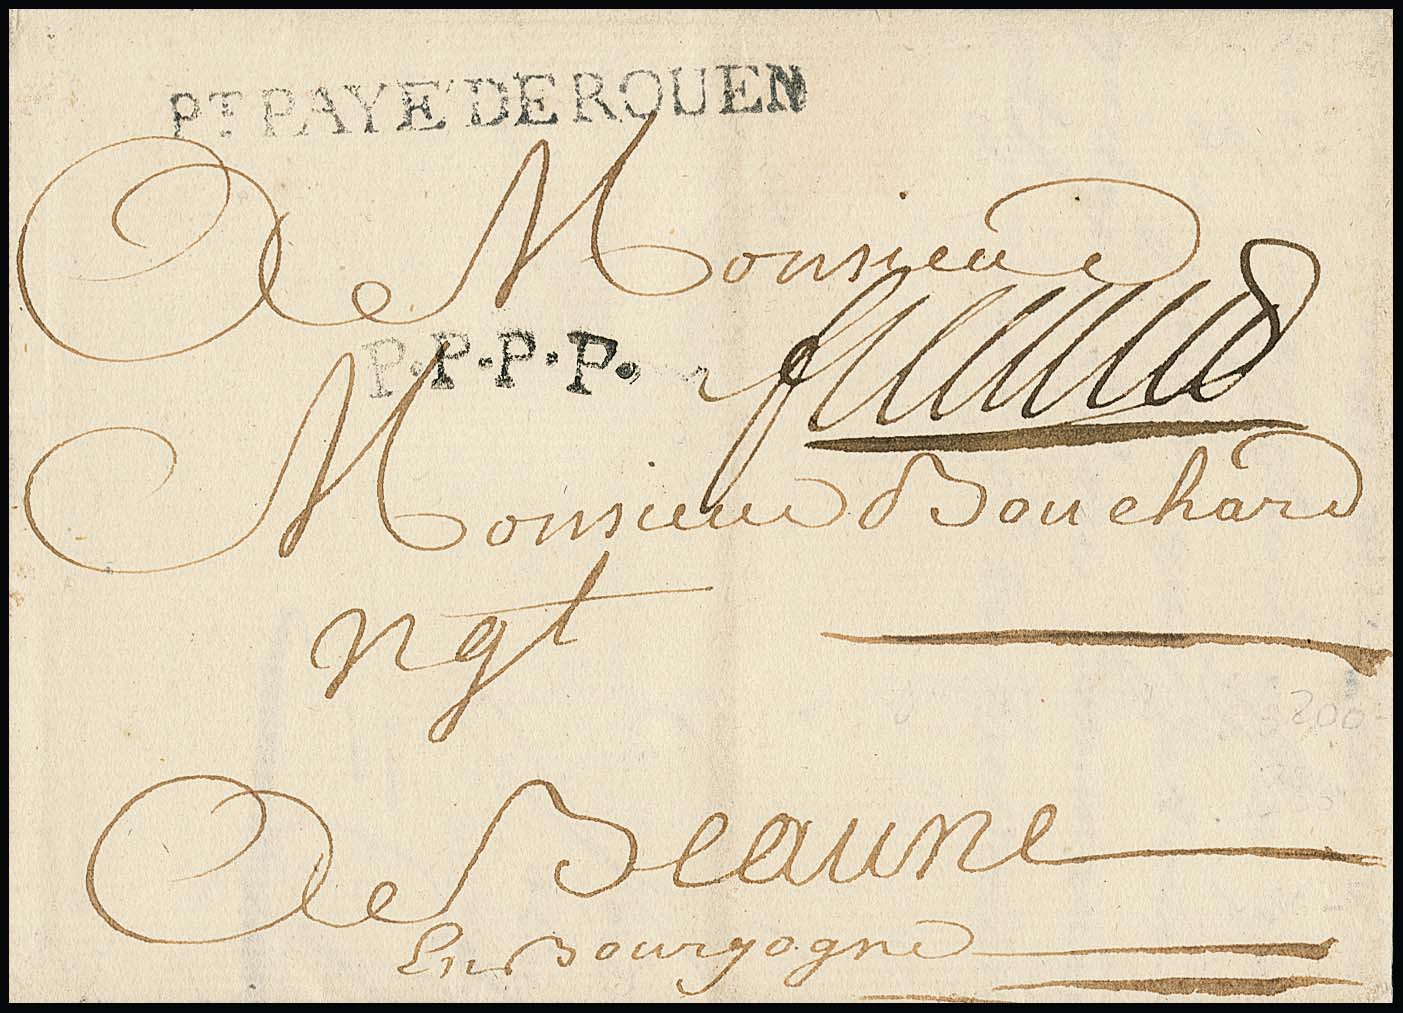 PT PAYÉ DE ROUEN
A Monsieur
P.P.P.P.
Monsieur Bouchard
ngt
A Beaune
En Bourgogne
200